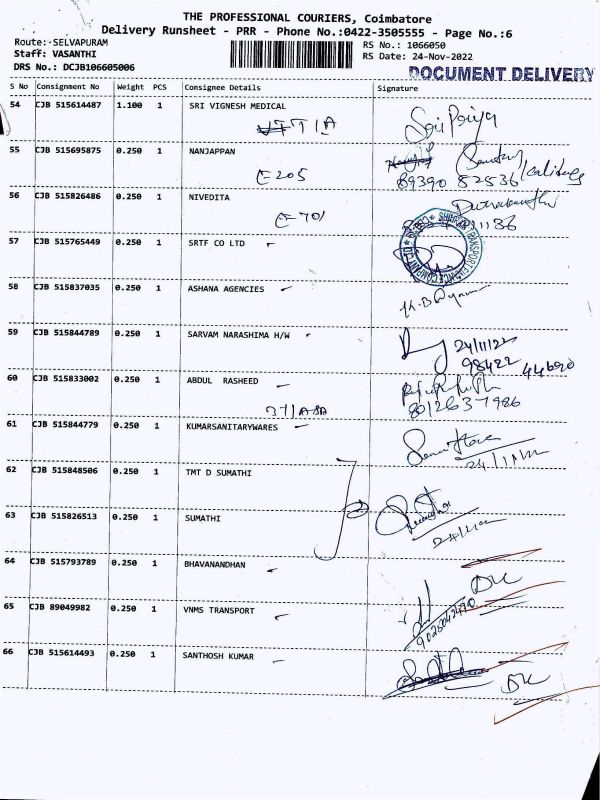 THE PROFESSIONAL COURIERS, Coimbatore
Delivery Runsheet - PRR - Phone No.:0422-3505555 - Page No.:6
Route: SELVAPURAM
RS No.: 1066050
Staff: VASANTHI
RS Date: 24-Nov-2022
DRS No.: DCJB106605006
DOCUMENT DELIVERY
S No Consignment No Weight PCS Consignee Details Signature
54 CJB 515614487 1.100 1 SRI VIGNESH MEDICAL
Sri Poriya
55 CJB 515695875 0.250 1 NANJAPPAN
E 205 89390 82536
56 CJB 515826486 0.250 1 NIVEDITA
E-701
57 CJB 515765449 0.250 1 SRTF CO LTD
58 CJB 515837035 0.250 1 ASHANA AGENCIES
59 CJB 515844789 0.250 1 SARVAM NARASHIMA H/W 24/11/22
98422 44690
60 CJB 515833002 0.250 1 ABDUL RASHEED
8012637986
61 CJB 515844779 0.250 1 KUMARSANITARYWARES
62 CJB 515848506 0.250 1 TMT D SUMATHI
63 CJB 515826513 0.250 1 SUMATHI
64 CJB 515793789 0.250 1 BHAVANANDHAN
65 CJB 89049982 0.250 1 VNMS TRANSPORT
66 CJB 515614493 0.250 1 SANTHOSH KUMAR